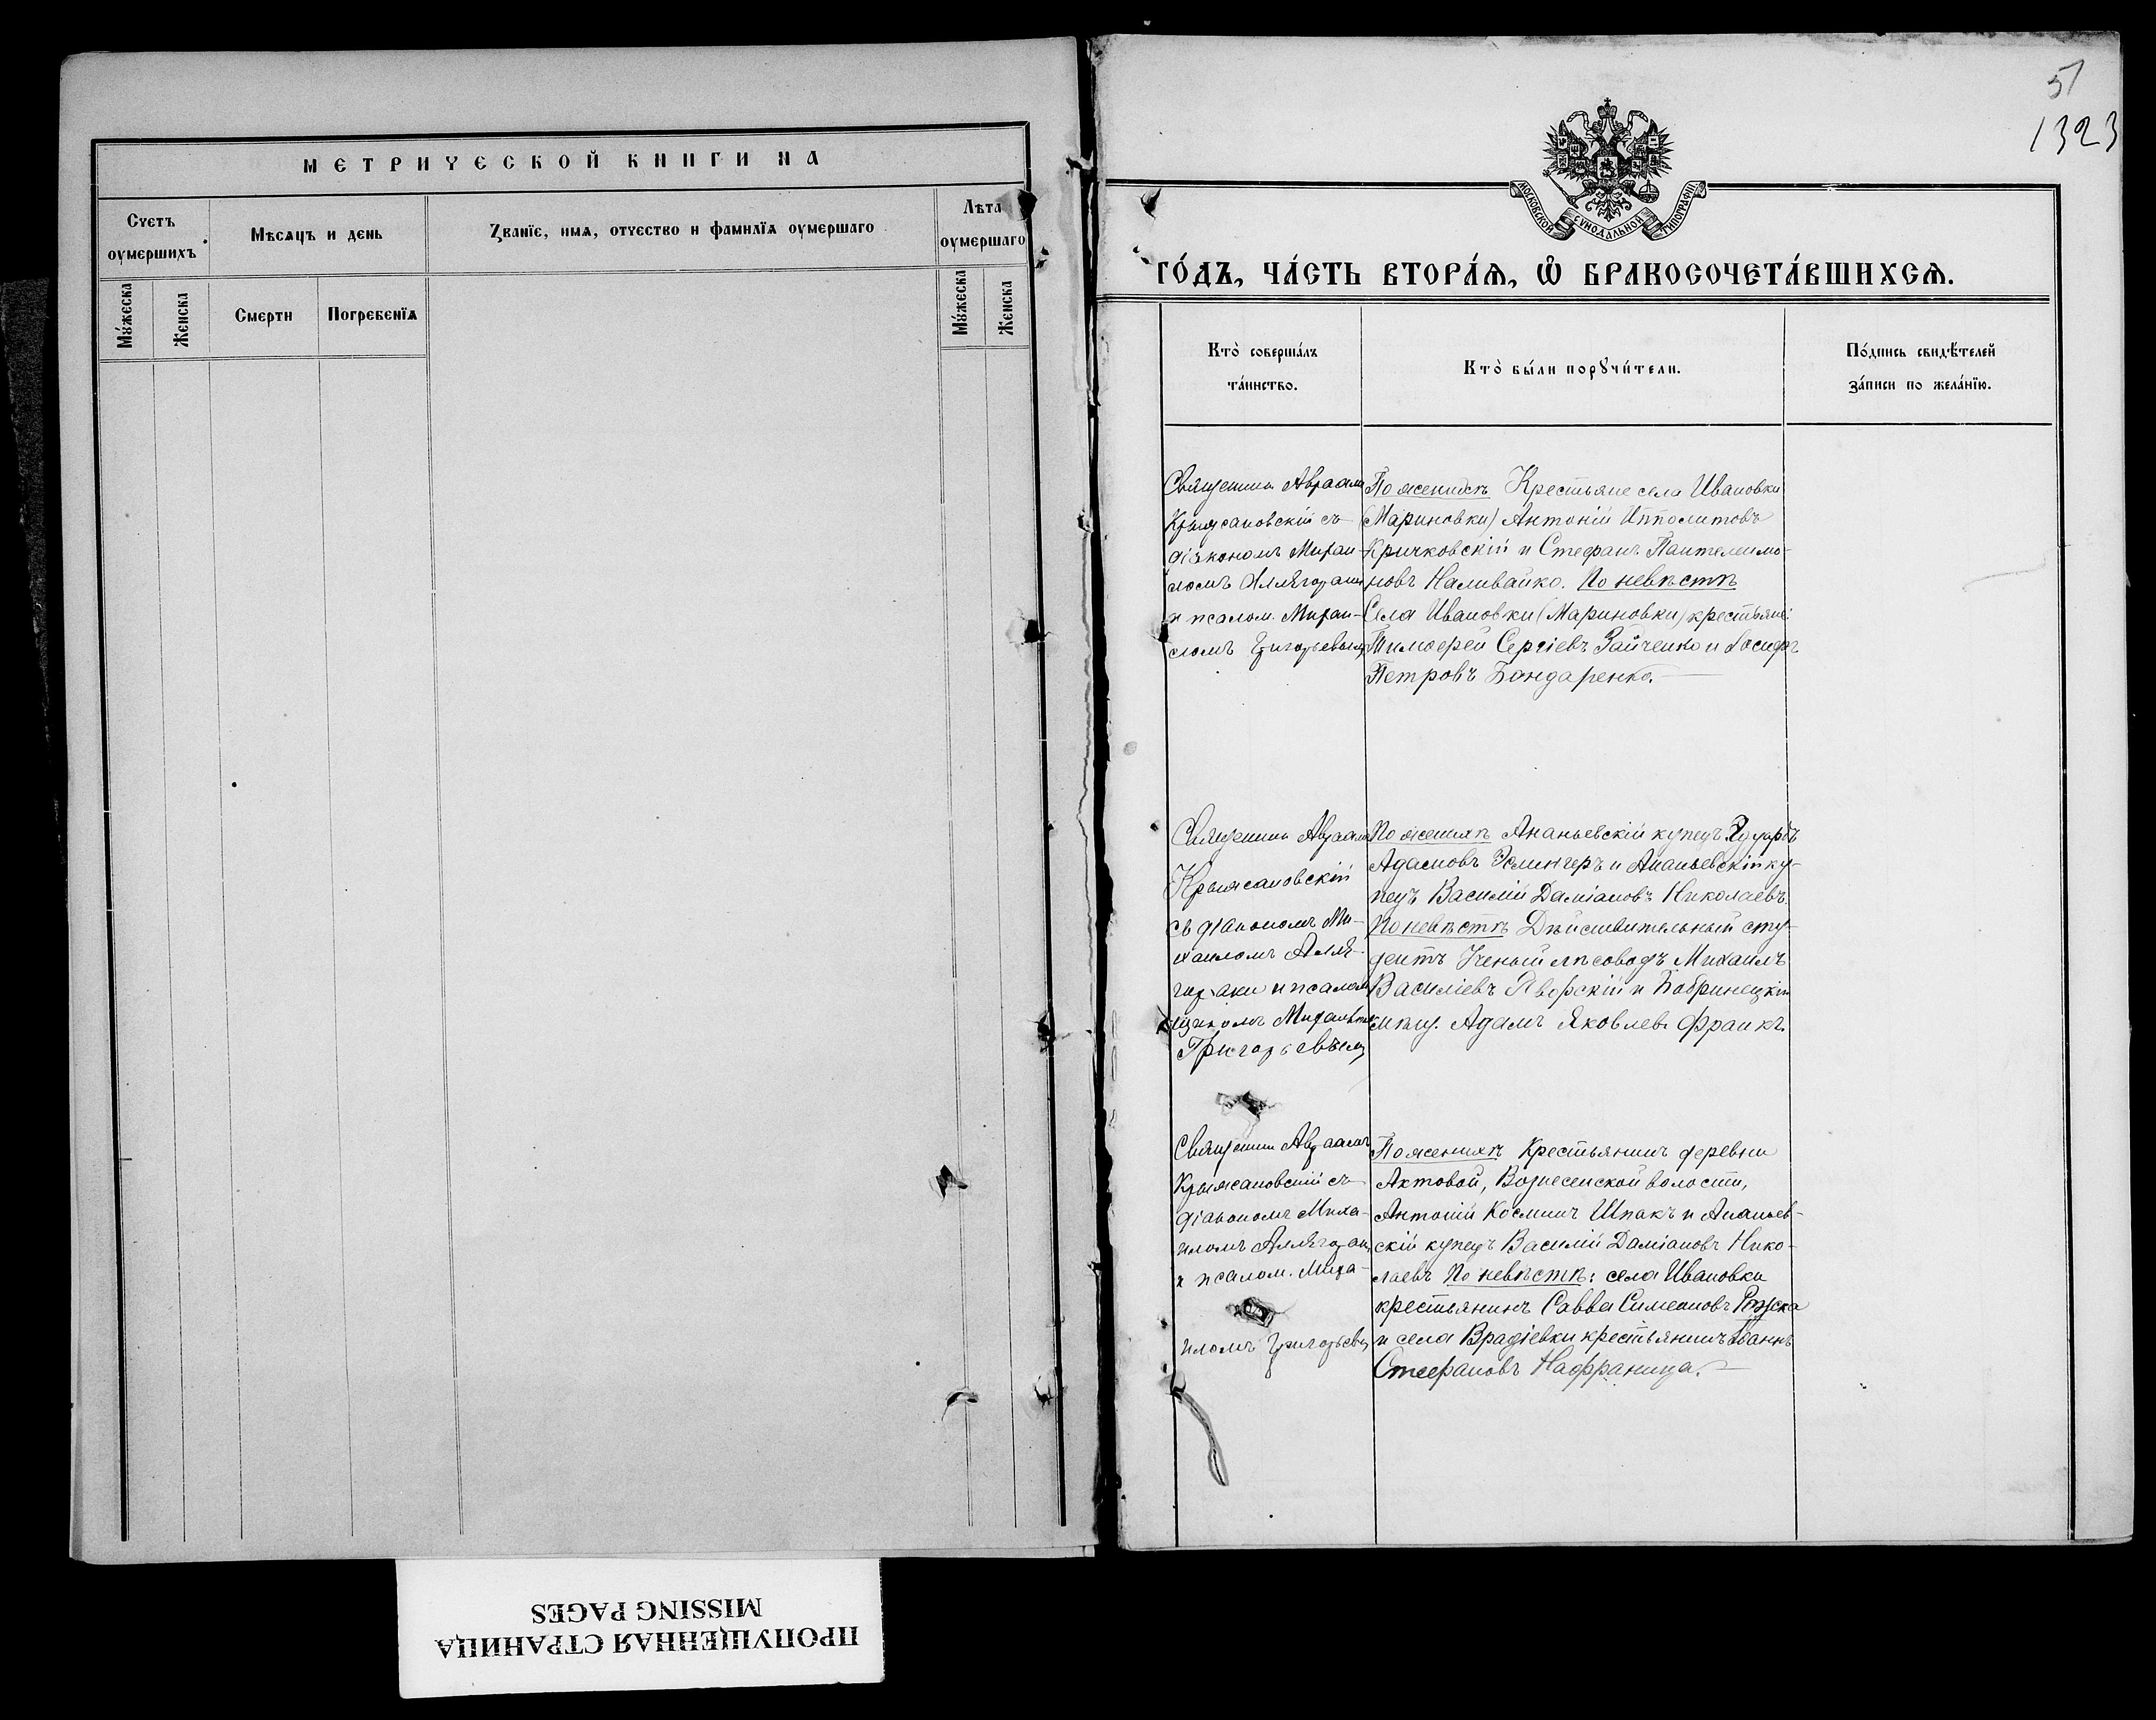 МЕТРИЧЕСКОЙ КНИГИ НА
Счетъ
оумершихъ
Мѣсяцъ и день
Званїе, имя, отчество и фамилїя оумершаго
Лѣта
оумершаго
Мꙋ́жеска
Женска
Смерти
Погребенїя
Мꙋ́жеска
Женска
51
1323
МОСКОВСКОЙ СѴНОДАЛЬНОЙ ТИПОГРАФІИ
ГО́ДЪ, ЧА́СТЬ ВТОРА́Ѧ, Ѡ БРАКОСОЧЕТА́ВШИХСѦ.
Кто̀ соверша́лъ
та́инство.
Кто̀ бы́ли порꙋчи́тели.
По́дпись свидѣ́телей
за́писи по жела́нїю.
Священникъ Авраамъ
Крыжановскій съ
діакономъ Михаи-
ломъ
и псалом. Михаи-
ломъ Григорьевымъ
По женихѣ Крестьяне села Ивановки
(Мариновки) Антоній Ипполитовъ
Кричковскій и Стефанъ Пантелеимо-
новъ Наливайко. По невѣстѣ
Села Ивановки (Мариновки) крестьяне:
Тимофей Сергіевъ Зайченко и Іосифъ
Петровъ Бондаренко.
Священникъ Авраамъ
Крыжановскій
съ діакономъ Ми-
хаиломъ
и псалом
щикомъ Михаиломъ
Григорьевымъ
По женихѣ Ананьевскій купецъ Эдуардъ
Адамовъ Эслингеръ и Ананьевскій ку-
пецъ Василій Даміановъ Николаевъ.
По невѣстѣ Дѣйствительный сту-
дентъ Ученый лѣсоводъ Михаилъ
Василіевъ Яворскій и Бобринецкій
мѣщ. Адамъ Яковлев. Франкъ.
Священникъ Авраамъ
Крыжановскій съ
діакономъ Миха-
иломъ
и псалом. Миха-
иломъ Григорьевы
По женихѣ Крестьянинъ деревни
Актовой, Вознесенской волости,
Антоній Космин Шпакъ и Ананьев-
скій купецъ Василій Даміановъ Нико-
лаевъ По невѣстѣ: села Ивановки
крестьянинъ Савва Симеоновъ
и села Врадіевки крестьянинъ Іоаннъ
Стефановъ Нафраница.
ПРОПУЩЕННАЯ СТРАНИЦА
MISSING PAGES